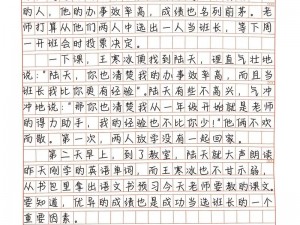 的人，他的办事效率高，成绩也名列前茅。老
师打算从他们两人中选出一人当班长，等下周
一开班会时投票决定。
一下课，王寒冰便找到陆天，理直气壮地
说："陆天，你也清楚我的办事效率高，而且当
班长我比你更有经验。"陆天有些不高兴，气冲
冲地说："那你也清楚我从一年级开始就是老师
的得力助手，我的经验也不比你少！"他俩不欢
而散。第一次，两人放学没有一起回家。
第二天早上，到了教室，陆天就大声朗读
昨天刚学的英语单词，而王寒冰也不甘示弱，
从书包里拿出语文书预习今天老师要教的课文。
要知道，优异的成绩也是成功当选班长的一个
重要因素。